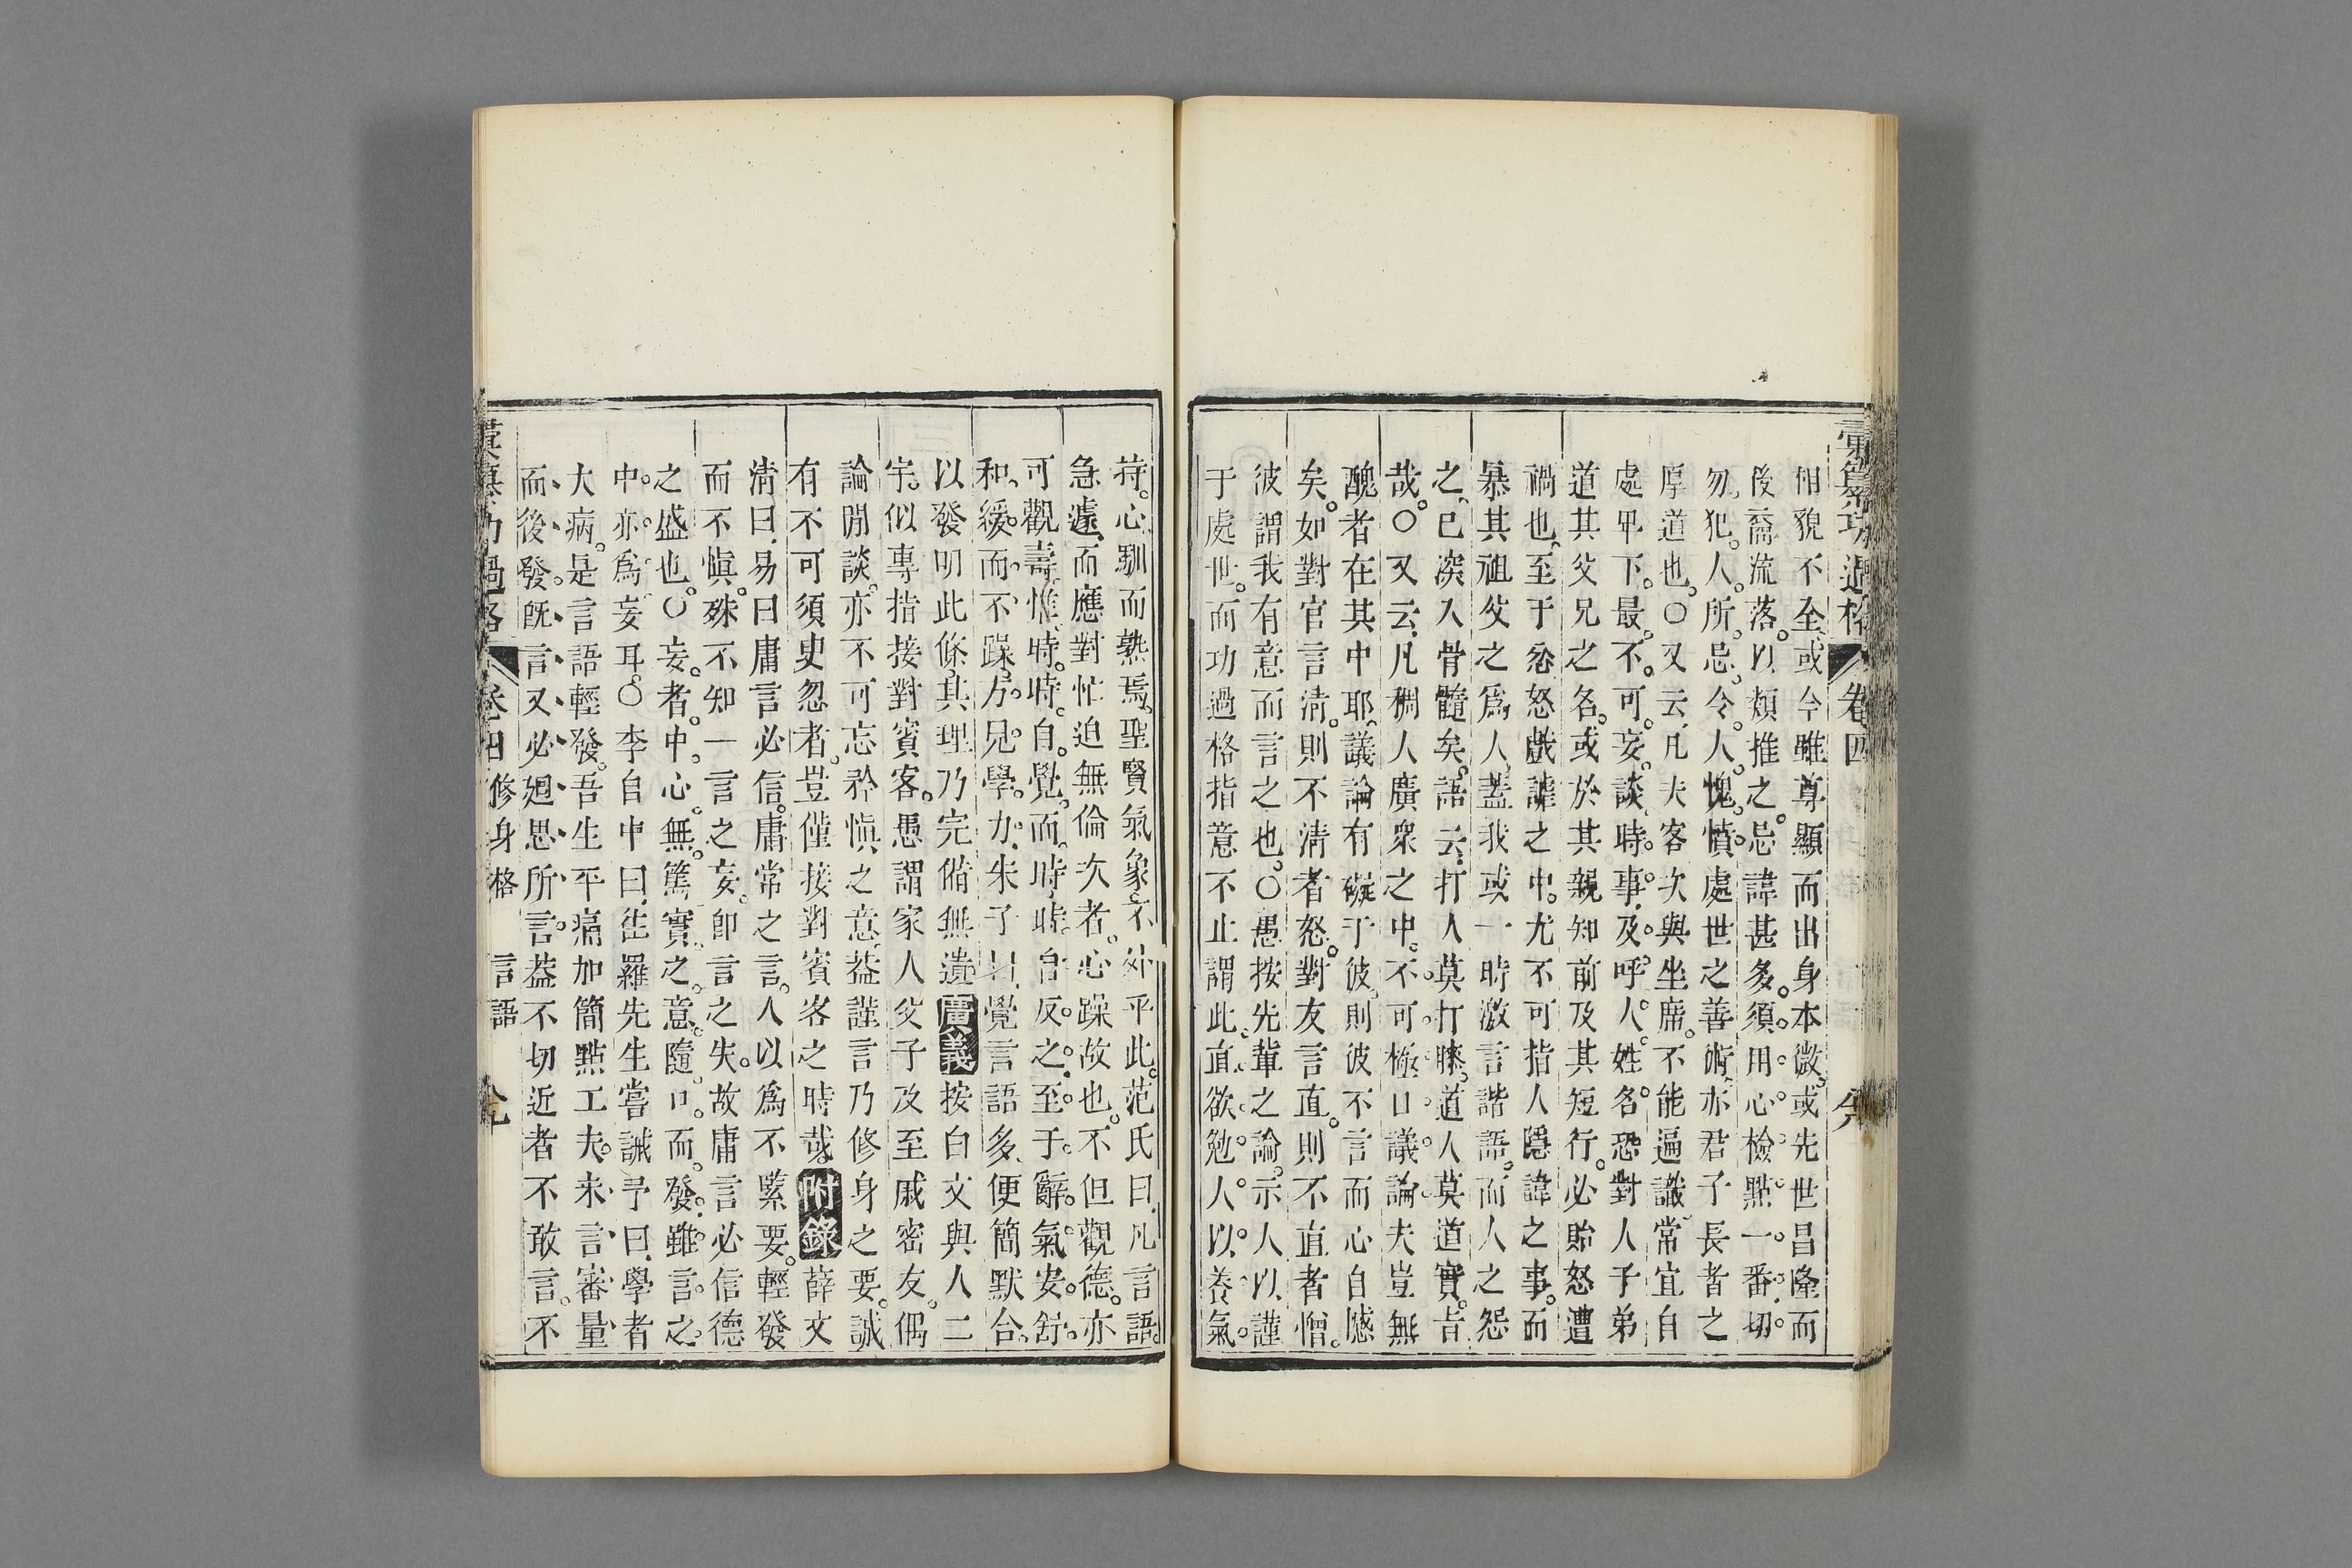 彙纂功過格 卷四
相貌不全或今雖尊顯而出身本微或先世昌隆而
後裔流落以類推之忌諱甚多須用心檢點一番切
勿犯人所忌令人愧憤處世之善術亦君子長者之
厚道也○又云凡夫客次與坐席不能遍識常宜自
處卑下最不可妄談時事及呼人姓名恐對人子弟
道其父兄之名或於其親知前及其短行必貽怒遭
禍也至于忿怒戲謔之中尤不可指人隱諱之事而
暴其祖父之爲人蓋我或一時激言諧語而人之怨
之已深入骨髓矣語云打人莫打膝道人莫道實旨
哉○又云凡稠人廣衆之中不可極口議論夫豈無
醜者在其中耶議論有礙于彼則彼不言而心自憾
矣如對官言淸則不淸者怒對友言直則不直者憎
彼謂我有意而言之也○愚按先輩之論示人以謹
于處世而功過格指意不止謂此直欲勉人以養氣
持心馴而熟焉聖賢氣象不外乎此范氏曰凡言語
急遽而應對忙迫無倫次者心躁故也不但觀德亦
可觀壽惟時時自覺而時時自反之至于辭氣安舒
和緩而不躁方見學力朱子曰覺言語多便簡默合
以發明此條其理乃完備無遺廣義按白文與人二
字似專指接對賓客愚謂家人父子及至戚密友偶
論閒談亦不可忘矜愼之意葢謹言乃修身之要誠
有不可須臾忽者豈僅接對賓客之時哉附錄薛文
淸曰易曰庸言必信庸常之言人以爲不緊要輕發
而不愼殊不知一言之妄卽言之失故庸言必信德
之盛也○妄者中心無篤實之意隨口而發雖言之
中亦爲妄耳○李自中曰徃羅先生嘗誡予曰學者
大病是言語輕發吾生平痛加簡點工夫未言審量
而後發旣言又必廻思所言葢不切近者不敢言不
彙纂功過格 卷四 修身格 言語